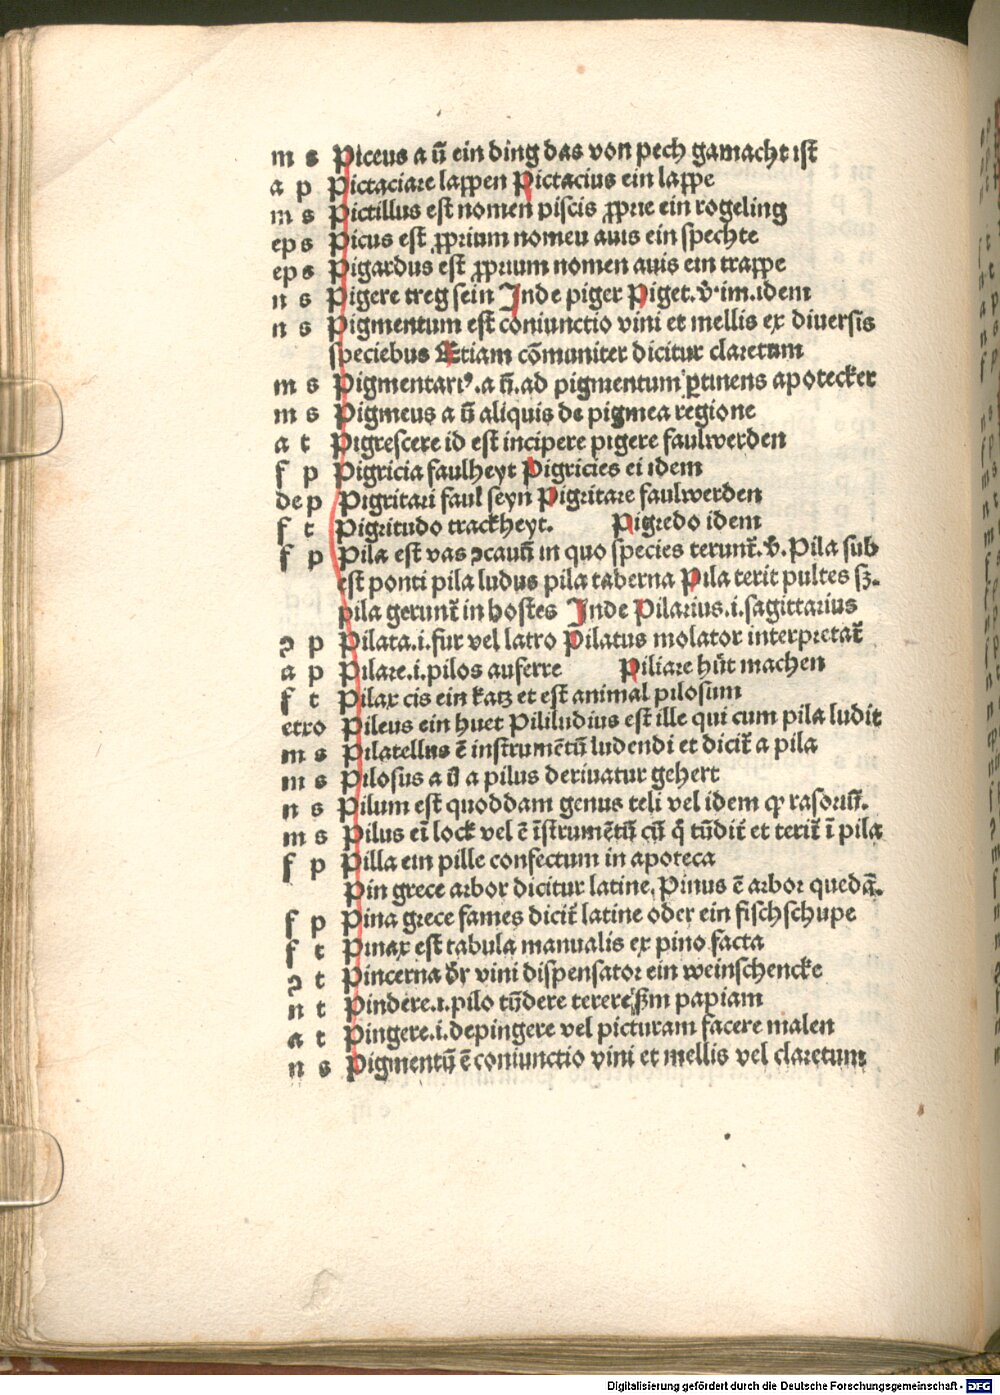 m s Piceus a ū ein ding das von pech gamacht ist
a p Pictaciare lappen Pictacius ein lappe
m s Pictillus est nomen piscis ꝓprie ein rogeling
ep s Picus est ꝓprium nomeu auis ein spechte
ep s Pigardus est ꝓprium nomen auis ein trappe
n s Pigere treg sein Inde piger Piget. v̄ im. idem
n s Pigmentum est coniunctio vini et mellis ex diuersis
speciebus Etiam cōmuniter dicitur claretum
m s Pigmentariꝰ. a ū. ad pigmentum ꝑtinens apotecker
m s Pigmeus a ū aliquis de pigmea regione
a t Pigrescere id est incipere pigere faulwerden
f p Pigricia faulheyt Pigricies ei idem
de p Pigritari faul seyn Pigritare faulwerden
f t Pigritudo trackheyt. Pigredo idem
f p Pila est vas ꝯcauū in quo species terunt̄. v̄. Pila sub
est ponti pila ludus pila taberna Pila terit pultes sꝫ.
pila gerunt̄ in hostes Inde Pilarius .i. sagittarius
ꝯ p Pilata .i. fur vel latro Pilatus molator interpretat̄
a p Pilare .i. pilos auferre Piliare hūt machen
f t Pilax cis ein katz et est animal pilosum
etro Pileus ein huet Pililudius est ille qui cum pila ludit
m s Pilatellus ē instrumētū ludendi et dicit̄ a pila
m s Pilosus a ū a pilus deriuatur gehert
n s Pilum est quoddam genus teli vel idem ꝙ rasoriū.
m s Pilus eī lock vel ē īstrumētū cū q̄ tūdit̄ et terit̄ ī pila
f p Pilla ein pille confectum in apoteca
Pin grece arbor dicitur latine. Pinus ē arbor quedā.
f p Pina grece fames dicit̄ latine oder ein fischschupe
f t Pinax est tabula manualis ex pino facta
ꝯ t Pincerna d̄r vini dispensator ein weinschencke
n t Pindere .i. pilo tūdere terere ẜm papiam
a t Pingere .i. depingere vel picturam facere malen
n s Pigmentū ē coniunctio vini et mellis vel claretum
Digitalisierung gefördert durch die Deutsche Forschungsgemeinschaft - DFG